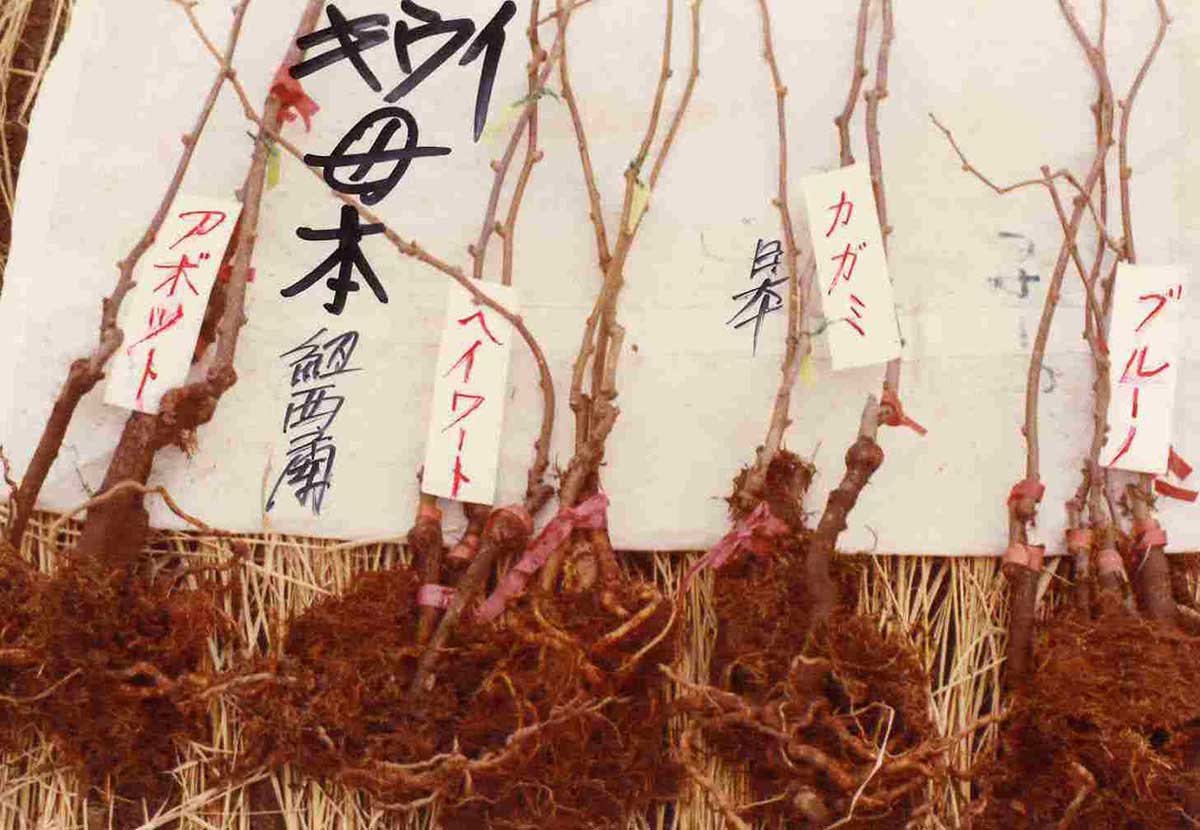 キウイ
母
本
アボット
紐西蘭
ヘイワート
日本
カガミ
ブルーノ